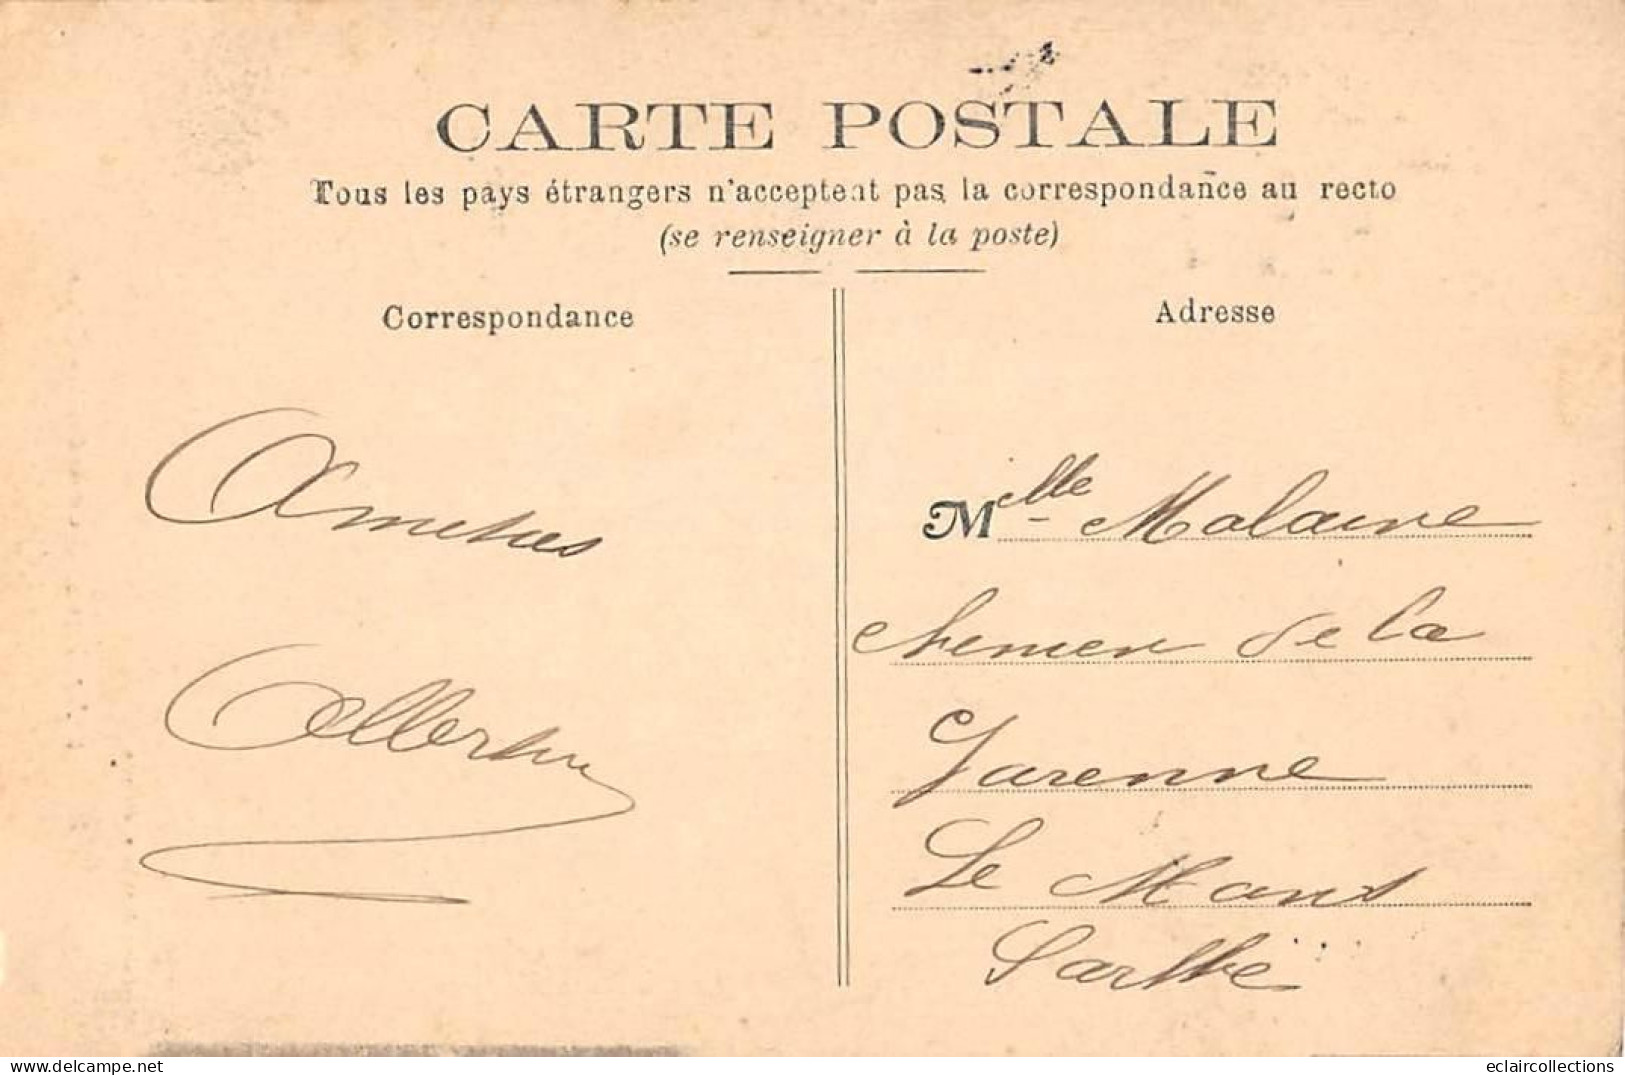 CARTE POSTALE
Tous les pays étrangers n'acceptent pas la correspondance au recto
(se renseigner à la poste)
Correspondance
Adresse
Amitiés
Albertine
Mlle Malaure
chemin de la
Garenne
Le Mans
Sarthe
eclaircollections